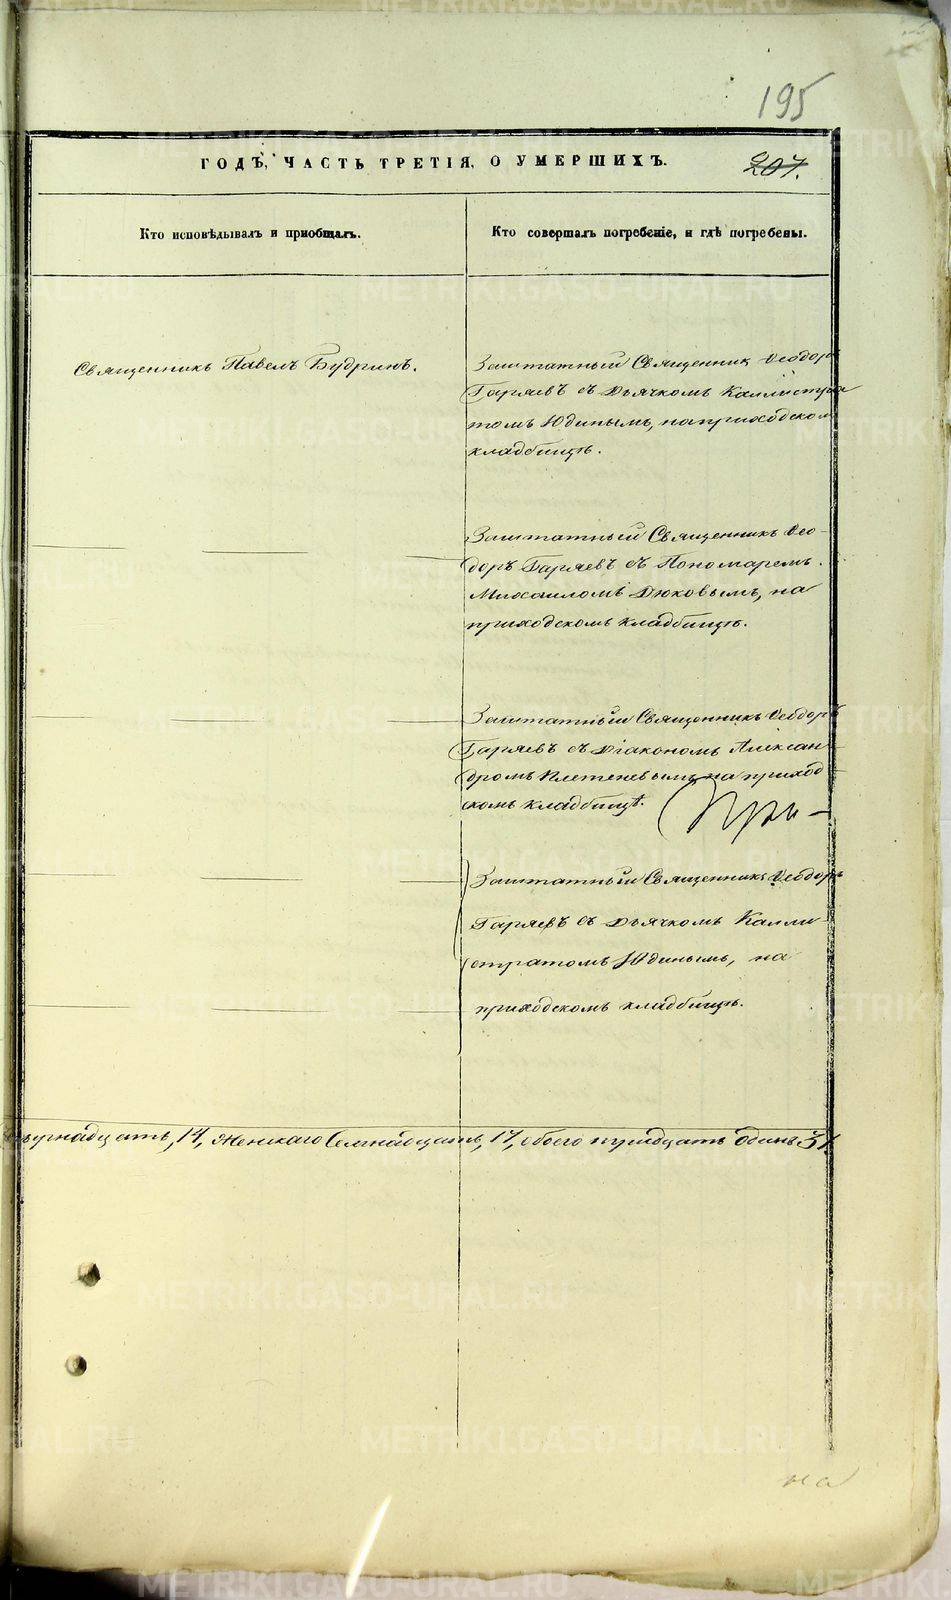 195
ГОДЪ, ЧАСТЬ ТРЕТІЯ, О УМЕРШИХЪ.
207.
Кто исповѣдывалъ и пріобщалъ.
Кто совершалъ погребеніе, и гдѣ погребены.
Священникъ Павелъ Будринъ.
Заштатный Священникъ Ѳеодоръ
Гаряевъ съ Дьячкомъ Каллистра
томъ Юдинымъ, на приходском
кладбищѣ.
Заштатный Священникъ Ѳео-
доръ Гаряевъ съ Пономаремъ
Михаиломъ Дюковымъ, на
приходскомъ кладбищѣ.
Заштатный Священникъ Ѳеодоръ
Гаряевъ съ Діакономъ Алексан
дромъ Плетеневымъ, на приход
скомъ кладбищѣ.
При-
Заштатный Священникъ Ѳеодоръ
Гаряевъ съ Дьячкомъ Калли-
стратомъ Юдинымъ, на
приходскомъ кладбищѣ.
14, Женскаго Семнадцать, 17, обоего тридцать одинъ 31.
на
METRIKI.GASO-URAL.RU